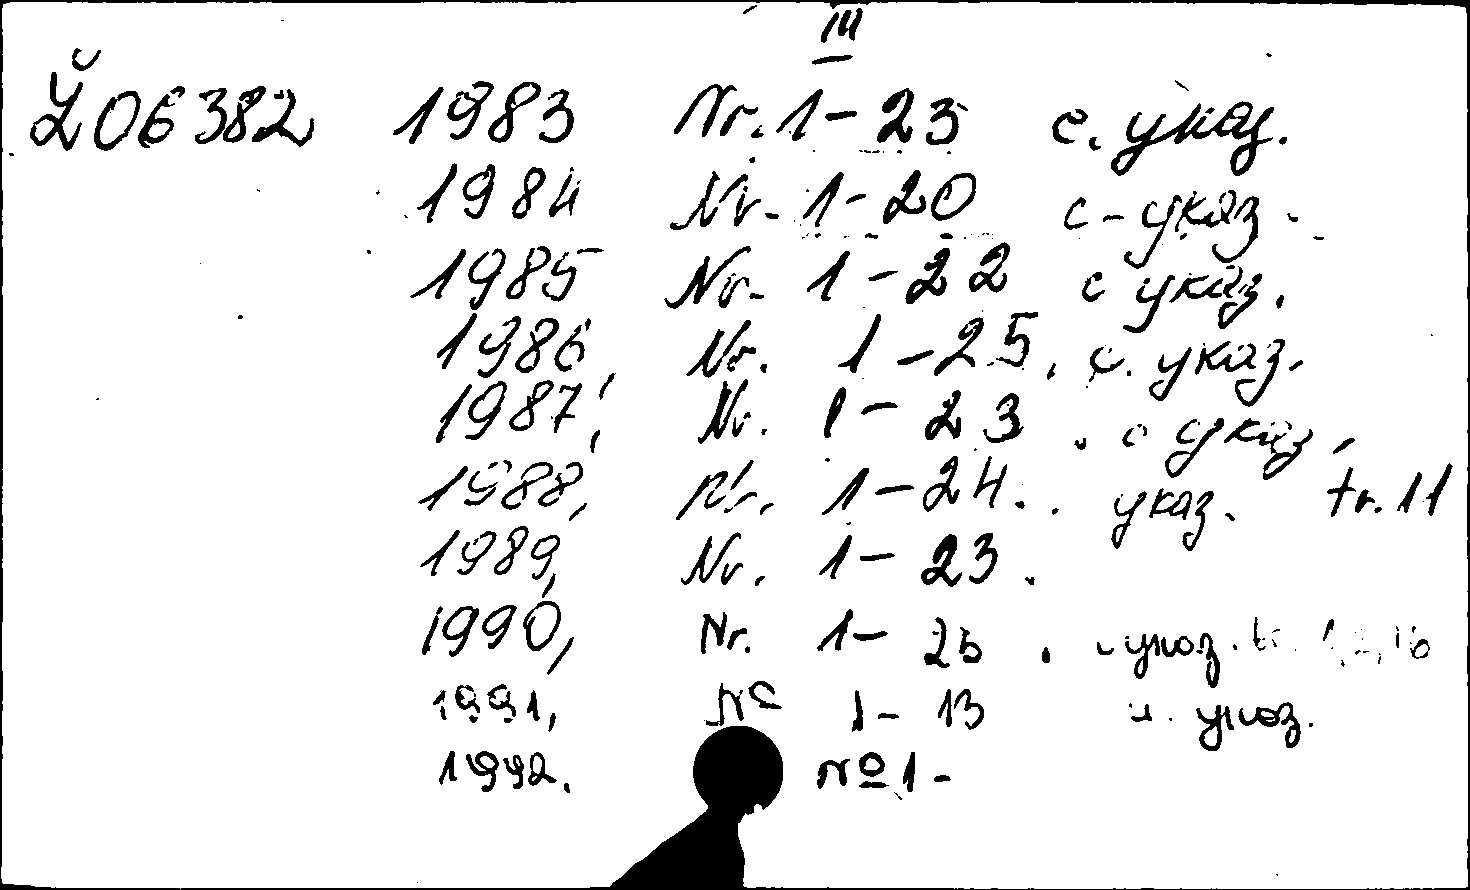 III
Ž06382 1983 Nr. 1-23 с. указ.
1984 Nr. 1-20 с-указ.
1985 Nr. 1-22 с указ.
1986, Nr. 1-25. с. указ.
1987, Nr. 1-23. с указ.
1988, Nr. 1-24. указ. tr. 11
1989, Nr. 1-23.
1990, Nr. 1- . с указ. tr.
1991, № 1-13 указ.
1992. № 1-